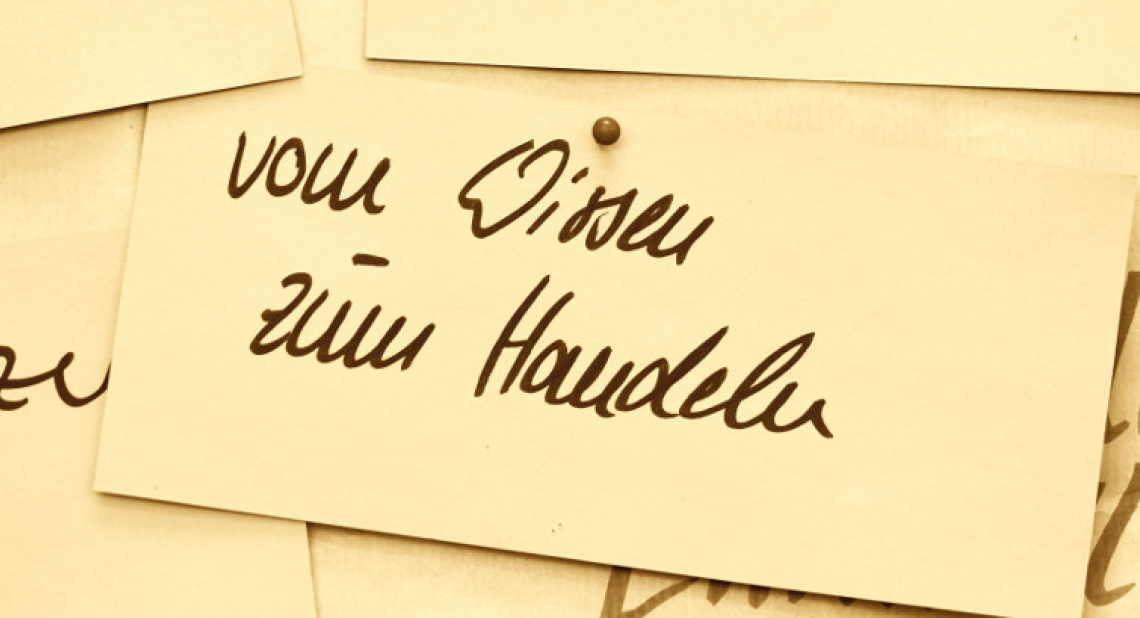 vom Wissen
zum Handeln
zu